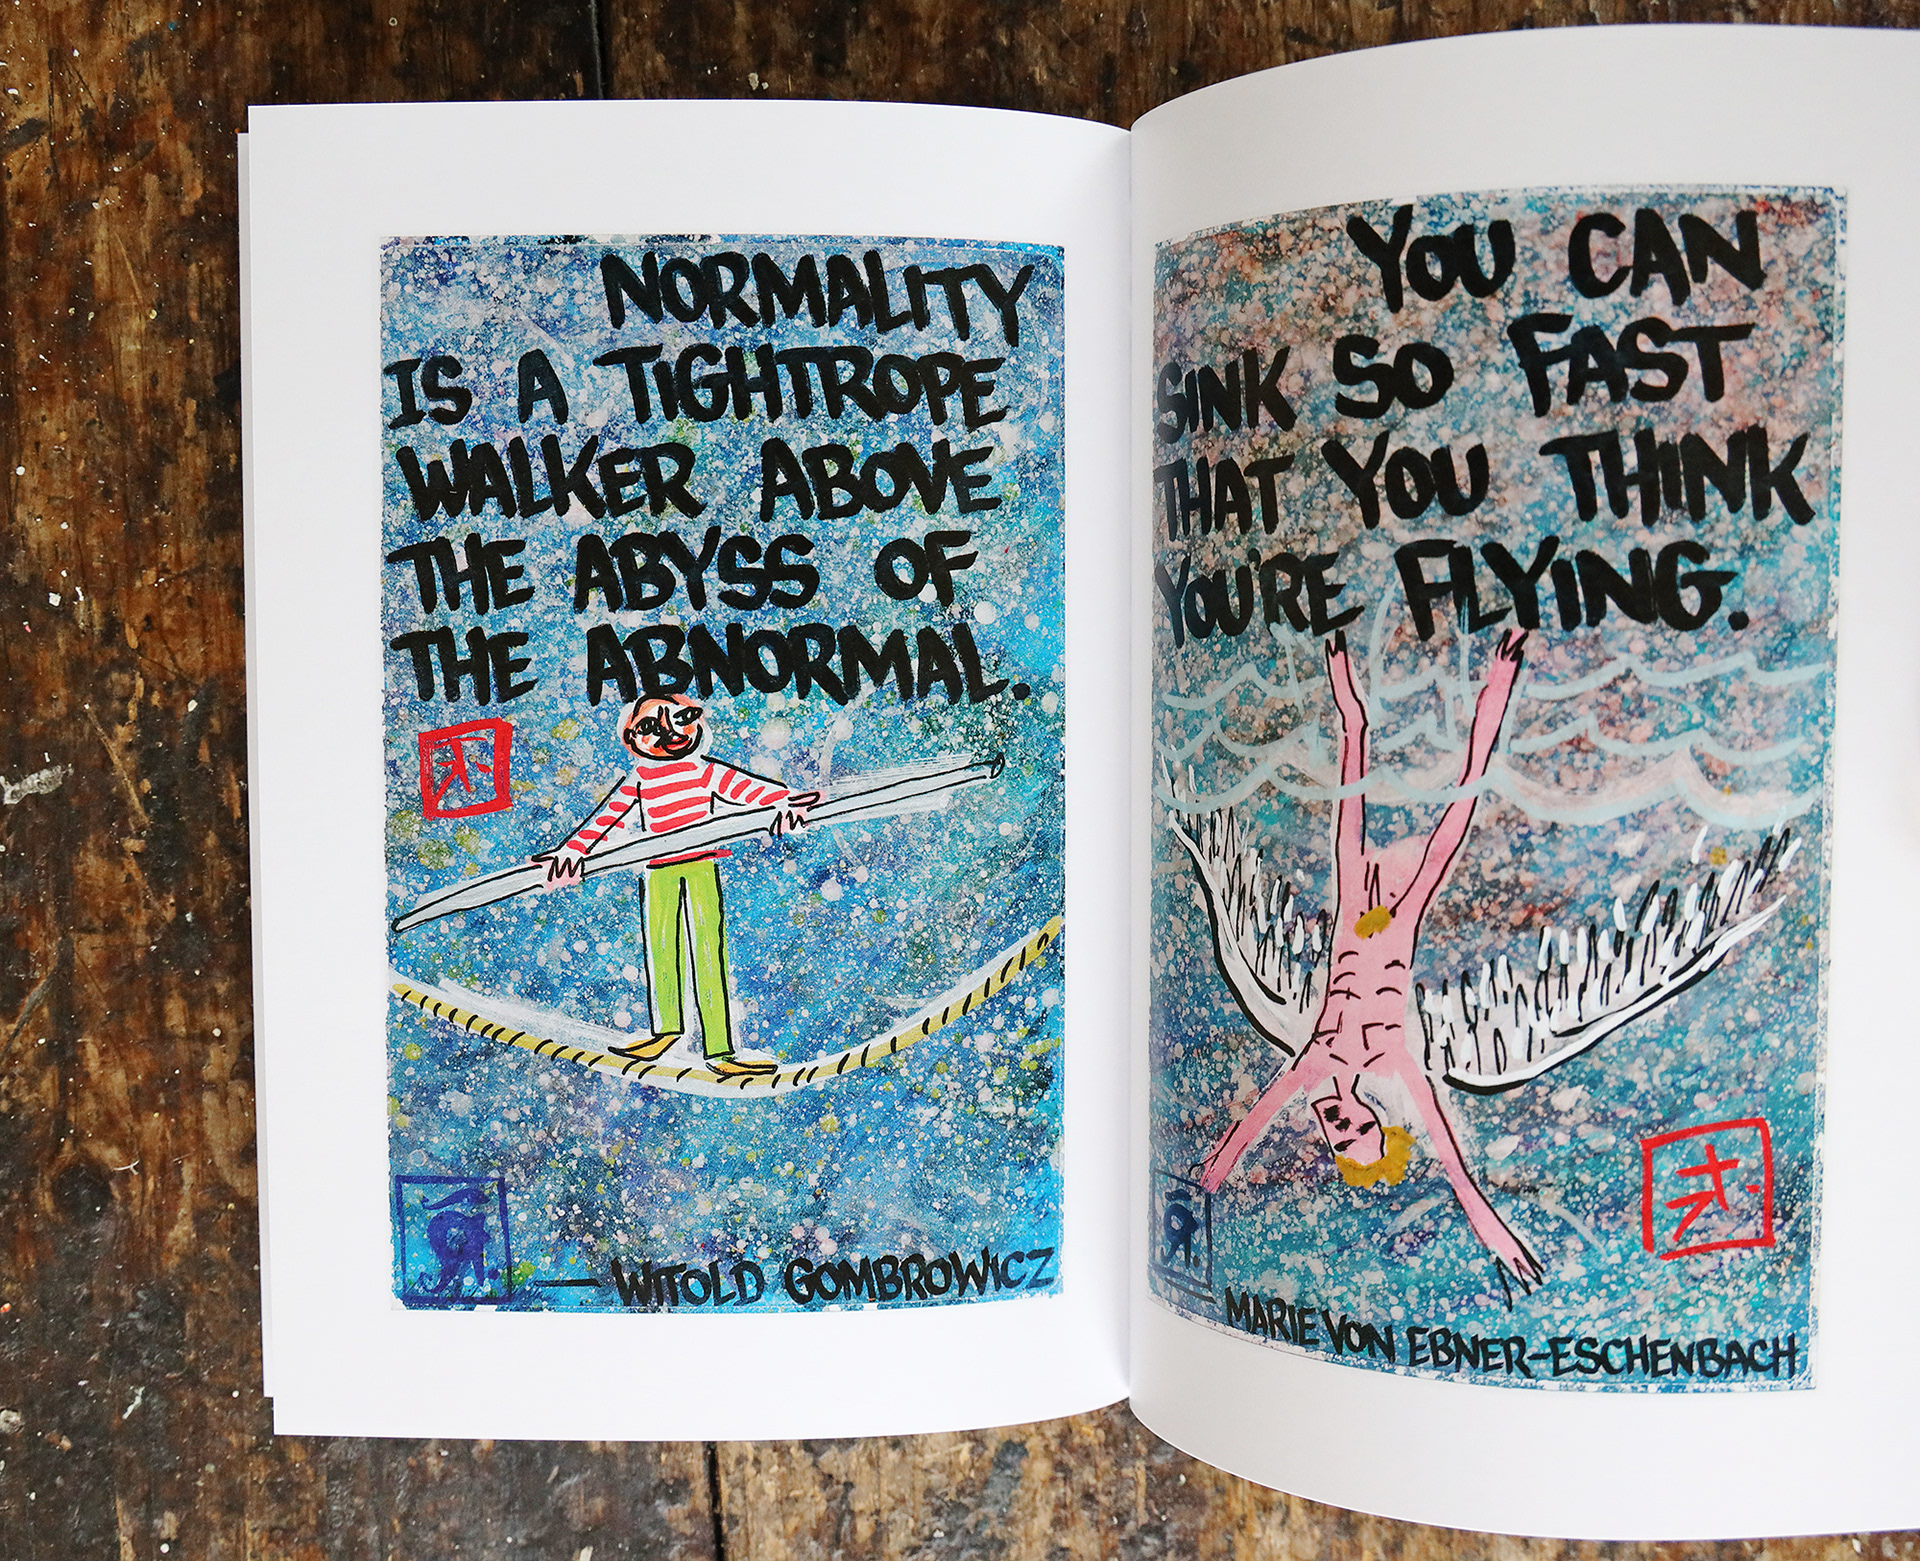 NORMALITY
IS A TIGHTROPE
WALKER ABOVE
THE ABYSS OF
THE ABNORMAL.
— WITOLD GOMBROWICZ
YOU CAN
SINK SO FAST
THAT YOU THINK
YOU'RE FLYING.
— MARIE VON EBNER-ESCHENBACH